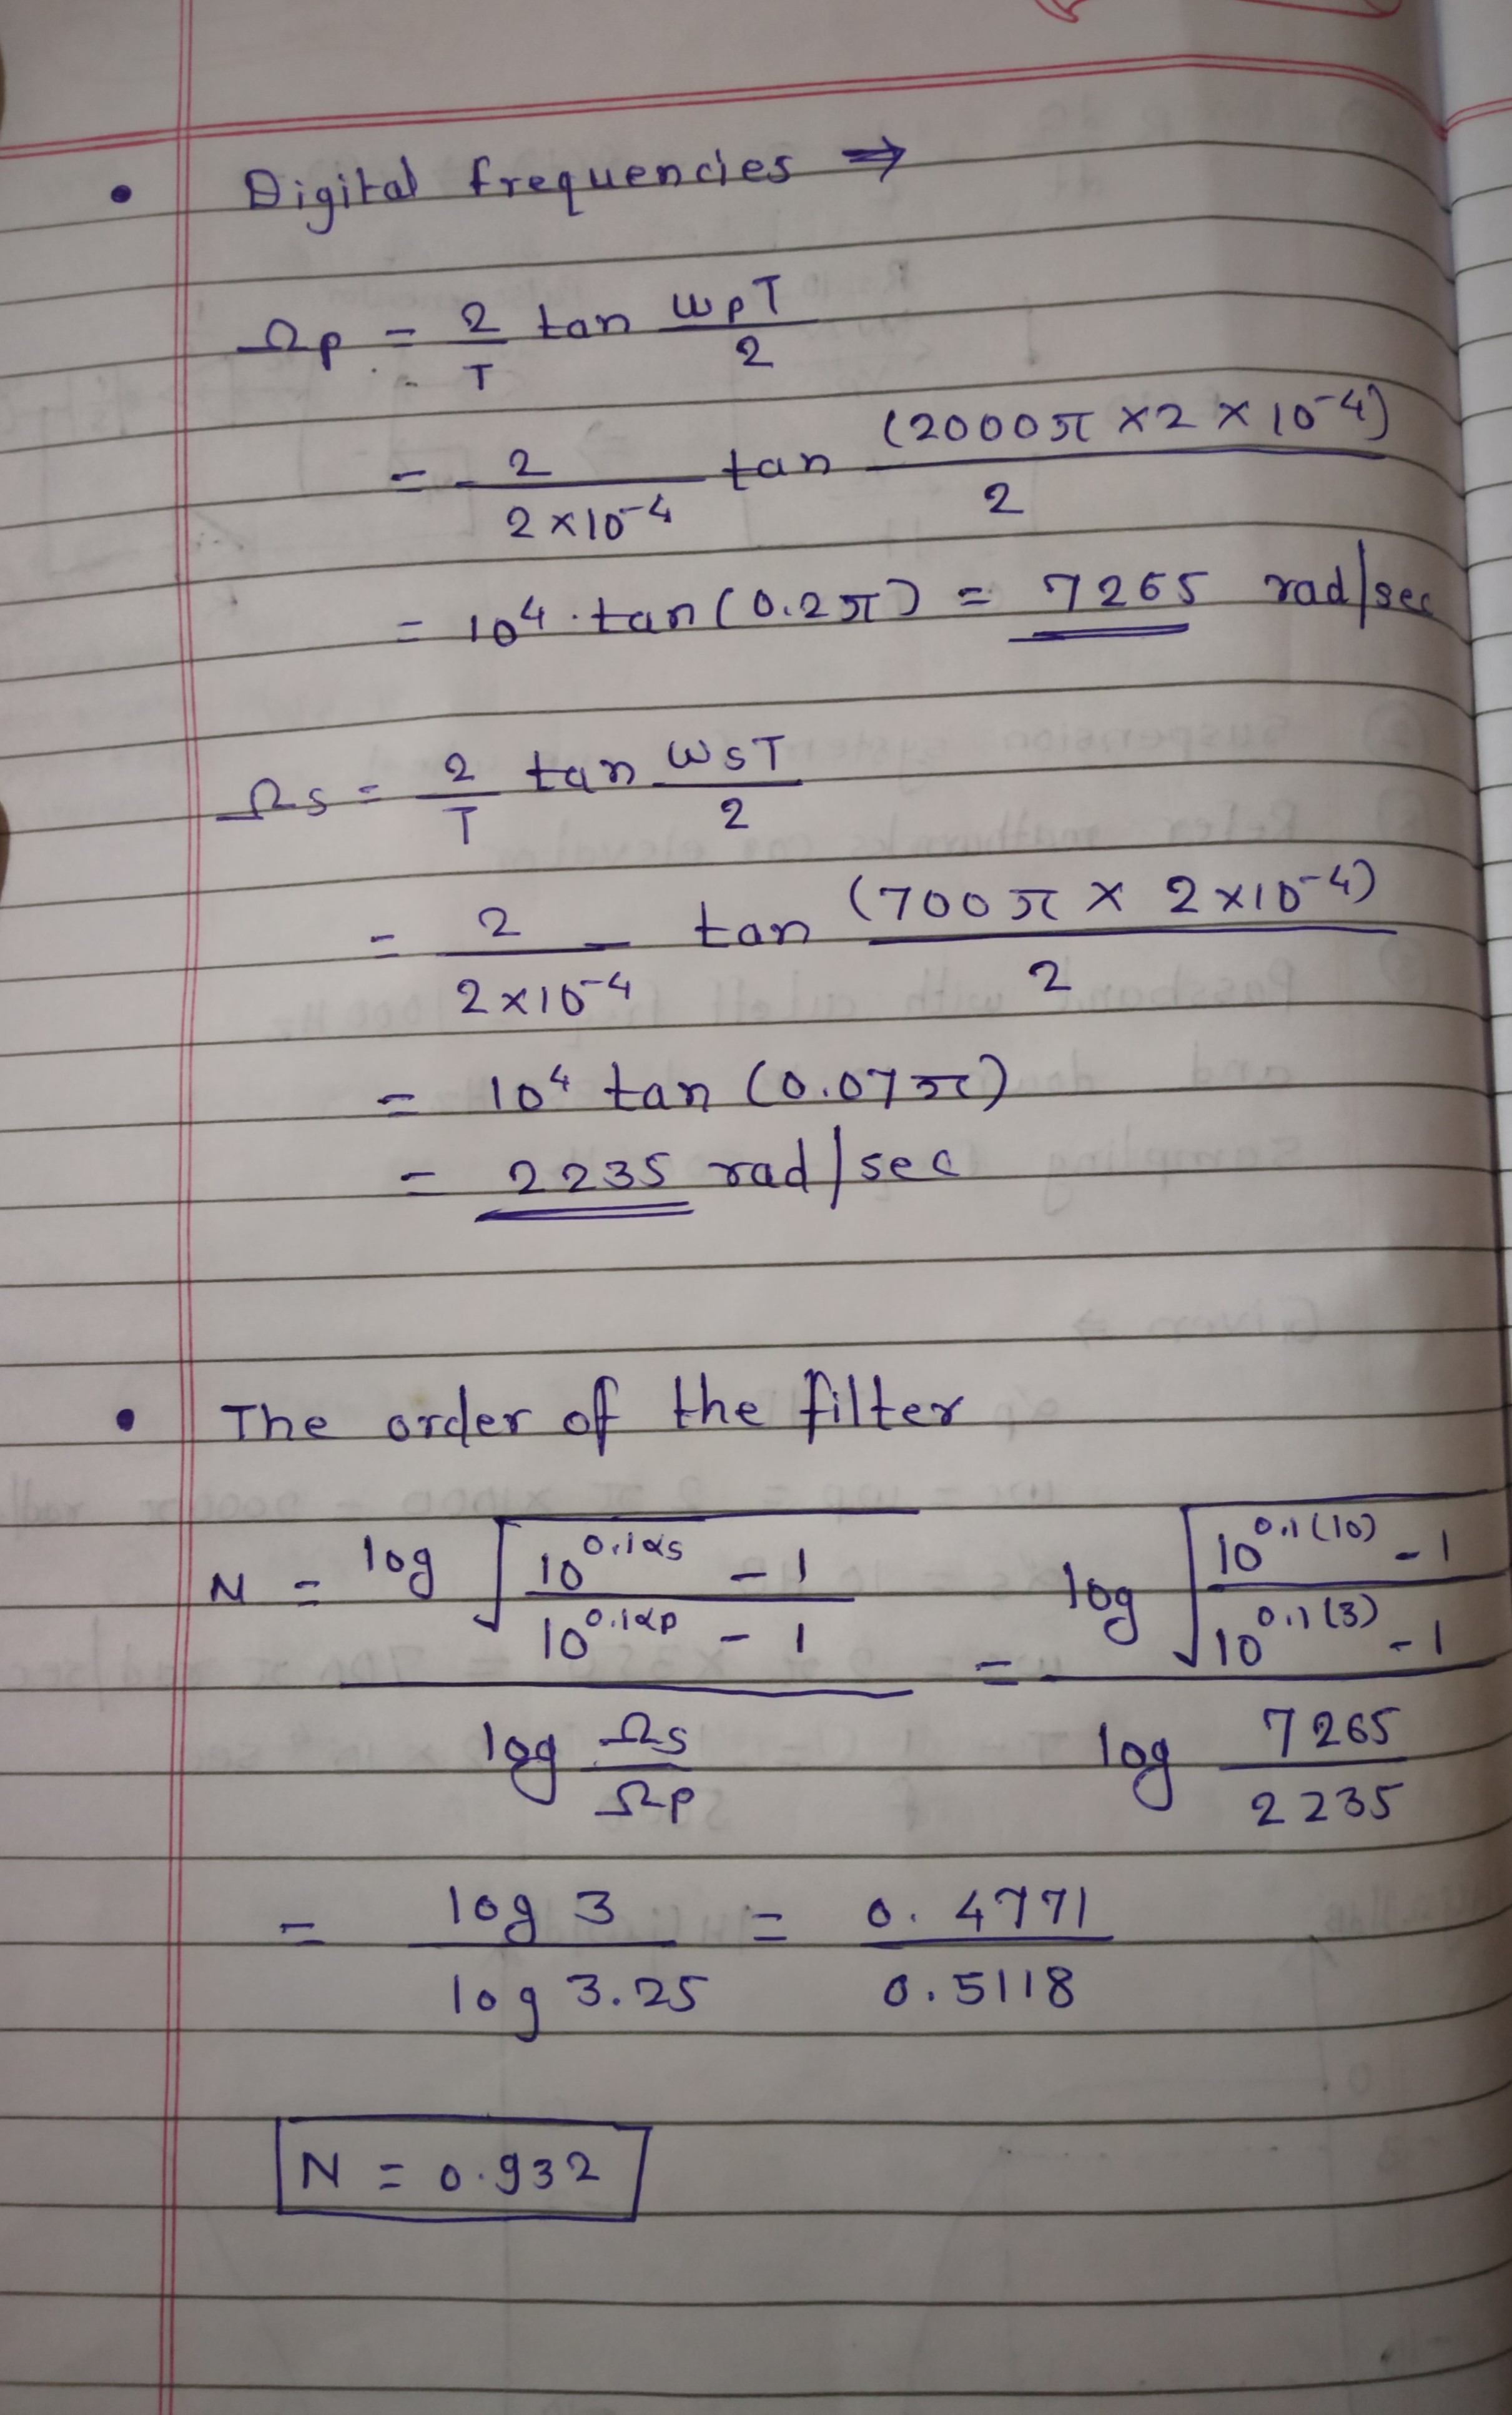 • Digital frequencies ⇒
Ωp = 2/T tan wpT/2
= 2/(2×10⁻⁴) tan (2000π × 2 × 10⁻⁴)/2
= 10⁴ · tan (0.2π) = 7265 rad/sec
Ωs = 2/T tan wsT/2
= 2/(2×10⁻⁴) tan (700π × 2×10⁻⁴)/2
= 10⁴ tan (0.07π)
= 2235 rad/sec
• The order of the filter
N = log √((10^0.1αs − 1)/(10^0.1αp − 1)) / log Ωs/Ωp = log √((10^0.1(10) − 1)/(10^0.1(3) − 1)) / log 7265/2235
= log 3 / log 3.25 = 0.4771 / 0.5118
N = 0.932